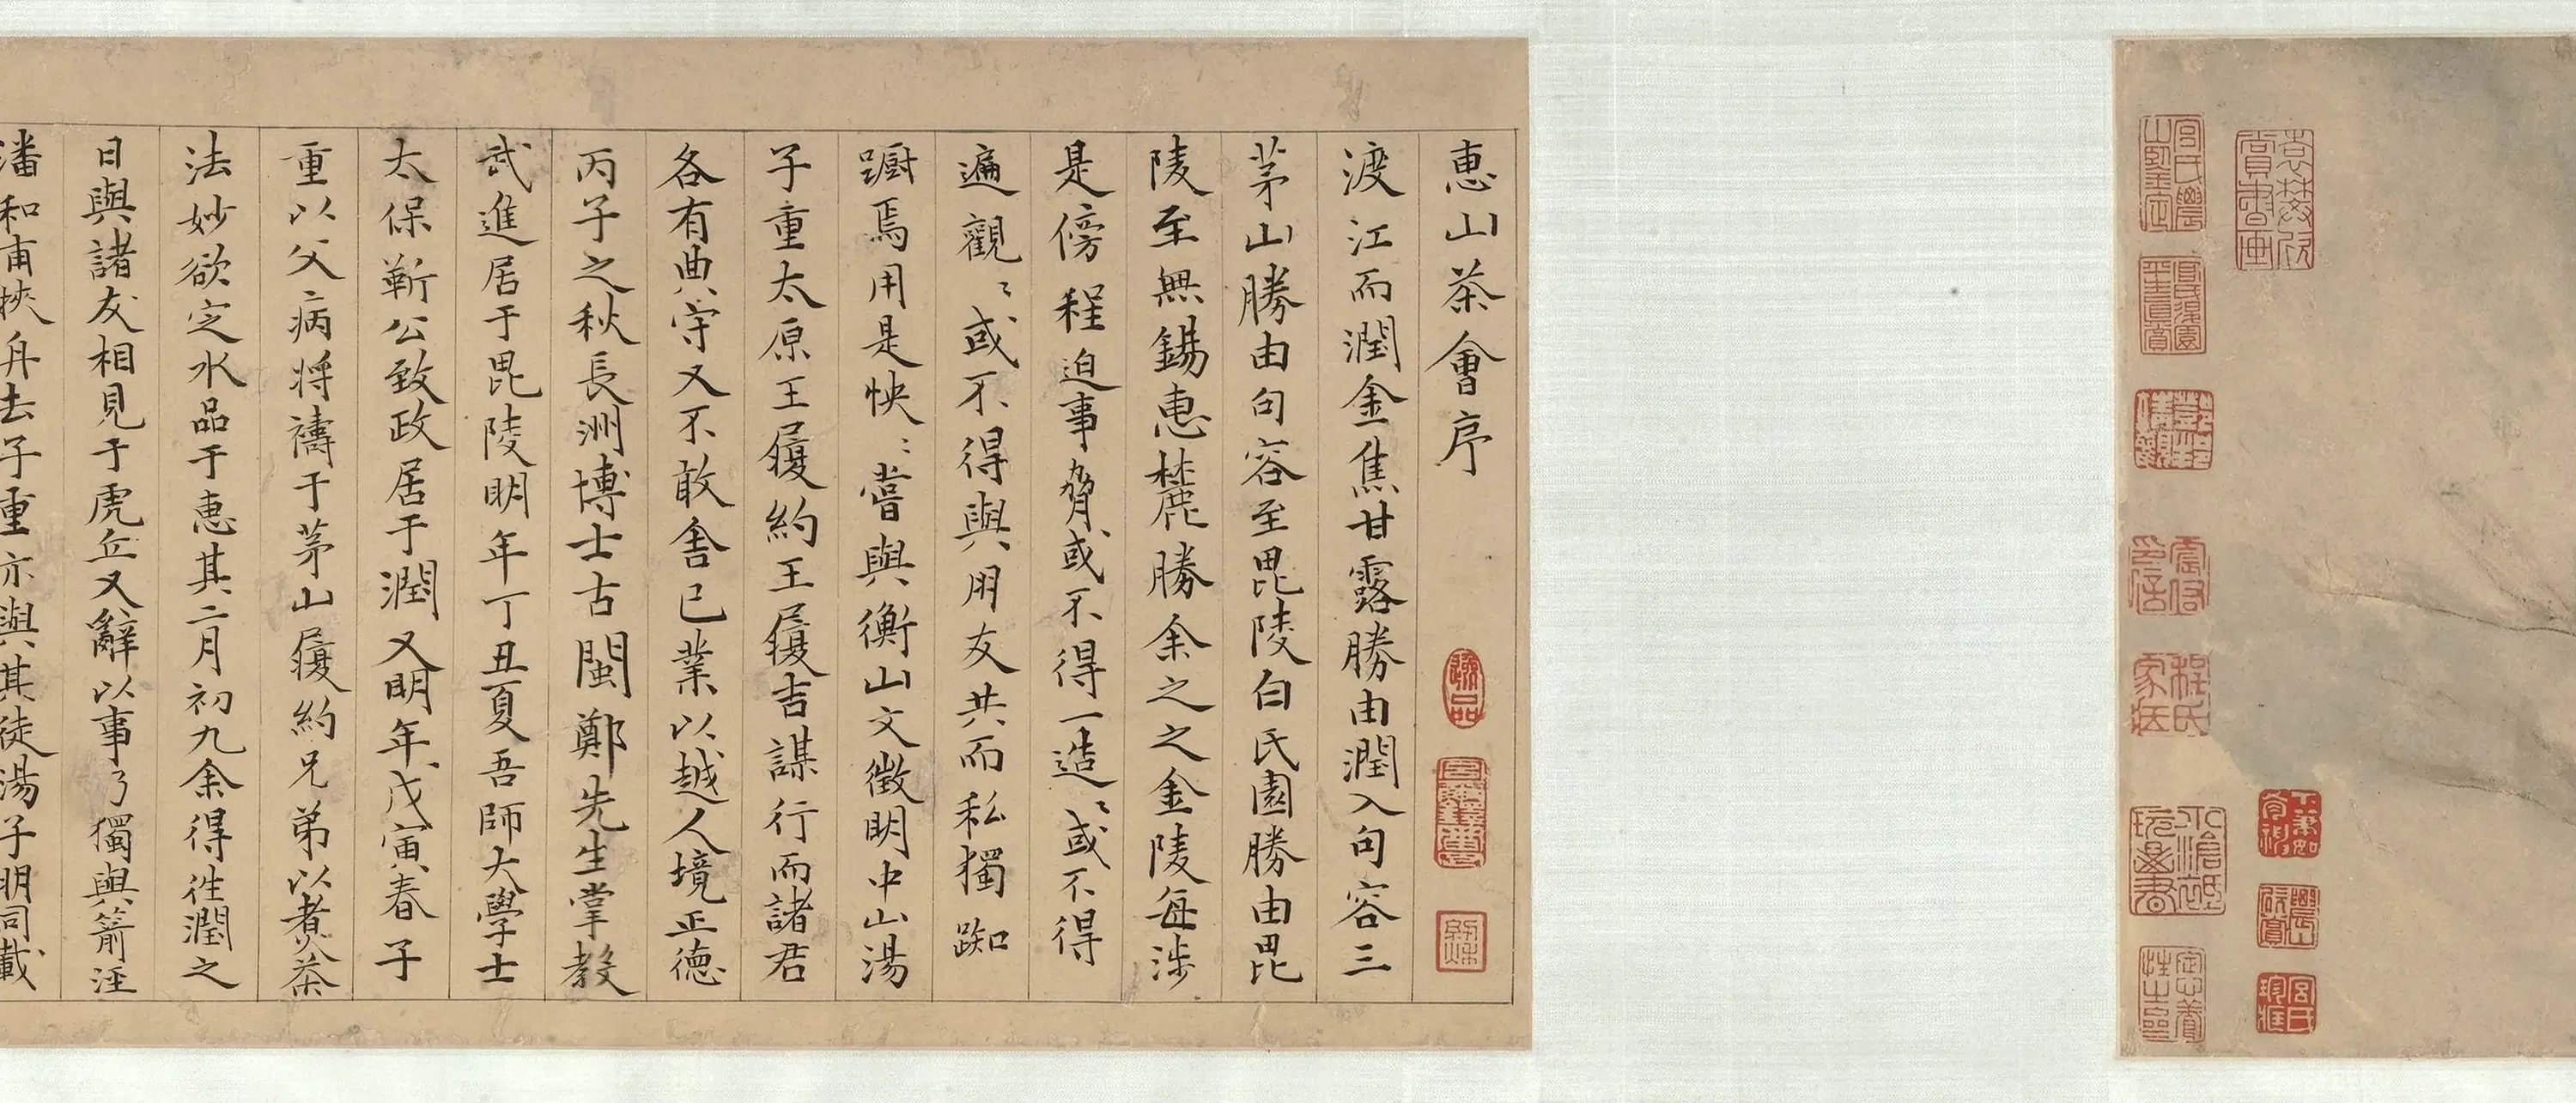 惠山茶會序
渡江而潤金焦甘露勝由潤入句容三
茅山勝由句容至毘陵白氏園勝由毘
陵至無錫惠麓勝余之之金陵每涉
是傍程迫事脅或不得一造〻或不得
遍觀〻或不得與朋友共而私獨踟
躕焉用是怏〻嘗與衡山文徵明中山湯
子重太原王履約王履吉謀行而諸君
各有典守又不敢舍已業以越人境正德
丙子之秋長洲博士古閩鄭先生掌教
武進居于毘陵明年丁丑夏吾師大學士
太保靳公致政居于潤又明年戊寅春子
重以父病將禱于茅山履約兄弟以煮茶
法妙欲定水品于惠其二月初九余得往潤之
日與諸友相見于虎丘又辭以事乃獨與箭涇
潘和甫挾舟去子重亦與其徒湯子明同載